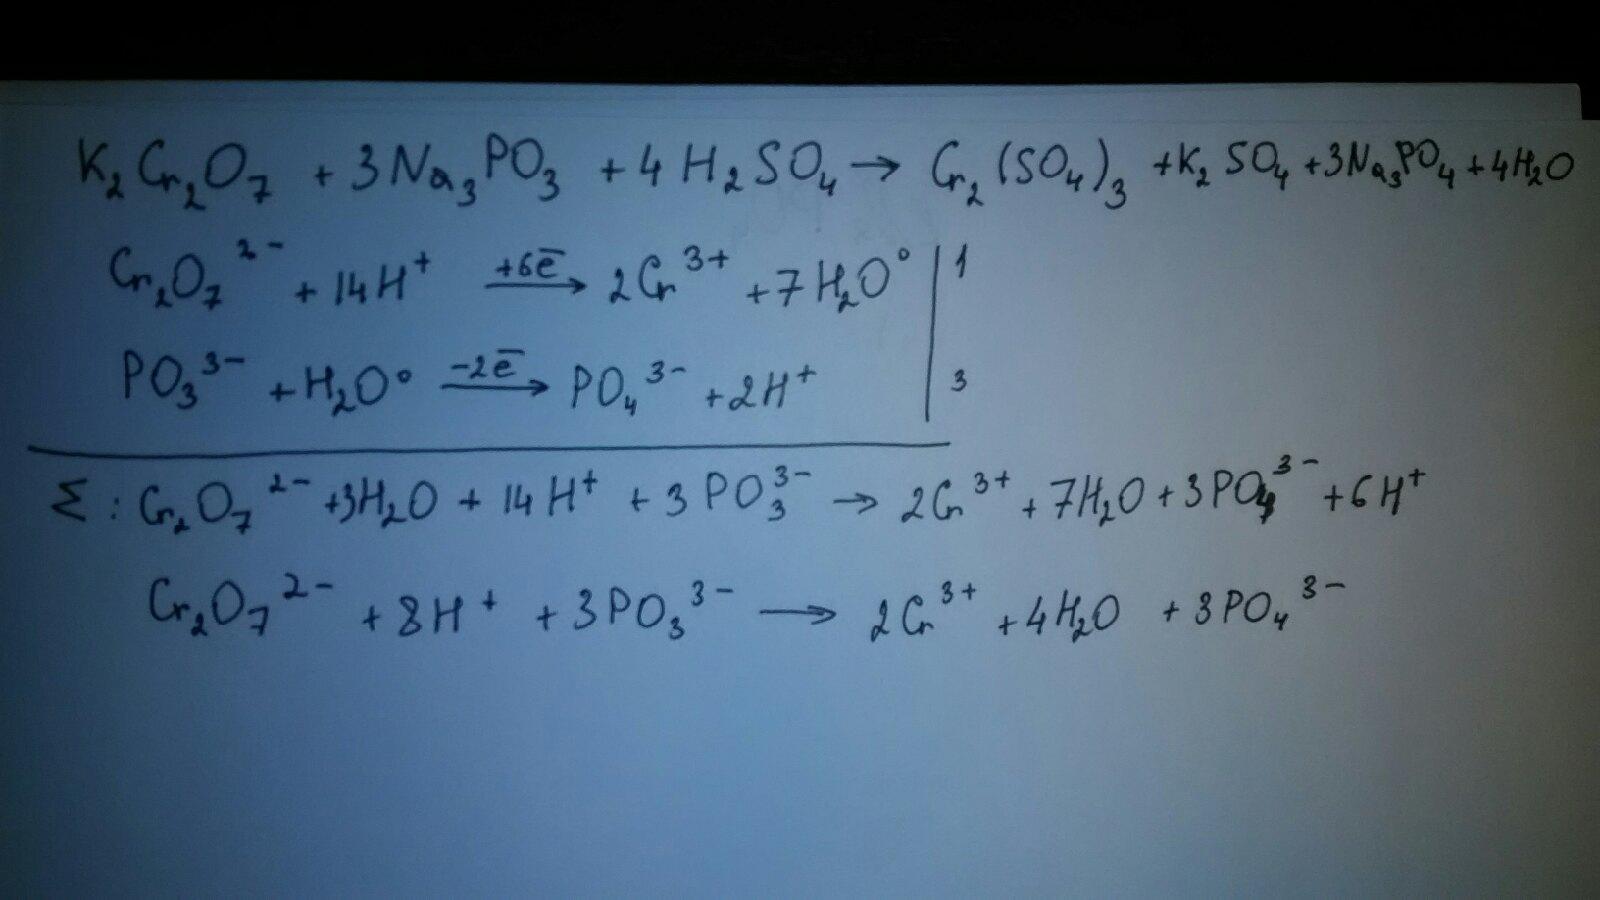 K₂Cr₂O₇ + 3Na₃PO₃ + 4H₂SO₄ → Cr₂(SO₄)₃ + K₂SO₄ + 3Na₃PO₄ + 4H₂O
Cr₂O₇²⁻ + 14H⁺ +6ē → 2Cr³⁺ + 7H₂O° | 1
PO₃³⁻ + H₂O° −2ē → PO₄³⁻ + 2H⁺ | 3
Σ: Cr₂O₇²⁻ + 3H₂O + 14H⁺ + 3PO₃³⁻ → 2Cr³⁺ + 7H₂O + 3PO₄³⁻ + 6H⁺
Cr₂O₇²⁻ + 8H⁺ + 3PO₃³⁻ → 2Cr³⁺ + 4H₂O + 3PO₄³⁻